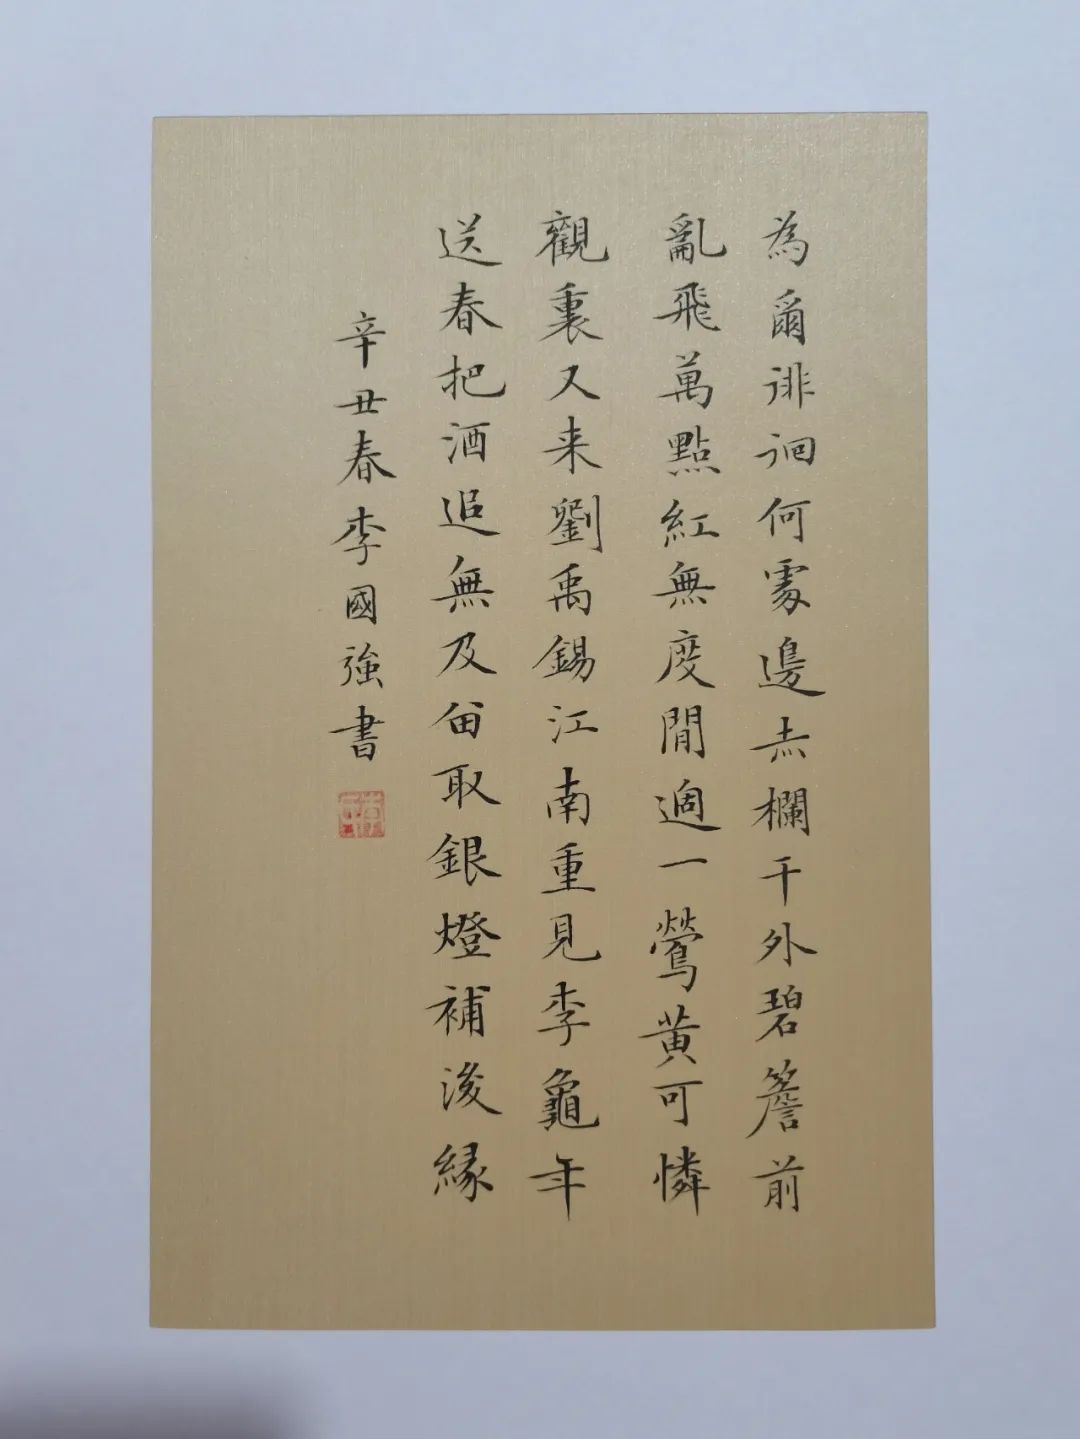 為爾徘徊何處邊赤欄干外碧簷前
亂飛萬點紅無度閒過一鶯黃可憐
觀裏又来劉禹錫江南重見李龜年
送春把酒追無及留取銀燈補後緣
辛丑春李國強書